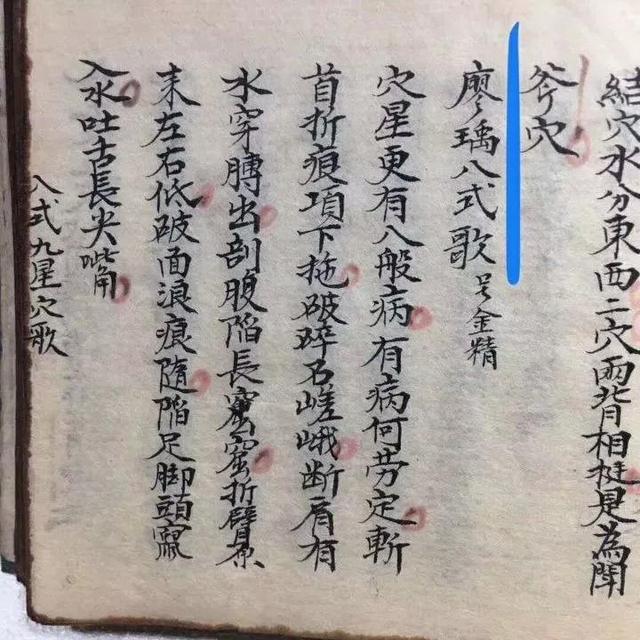 結穴水分東西二穴兩背相挺見為閗
斧穴
廖瑀八式歌 号金精
穴星更有八般病有病何劳定斬
首折痕項下拖破碎石嵯峨断肩有
水穿膊出剖腹陷長窠窟折臂原
来左右低破面浪痕随陷足脚頭竄
入水吐舌長尖嘴
八式九星穴歌